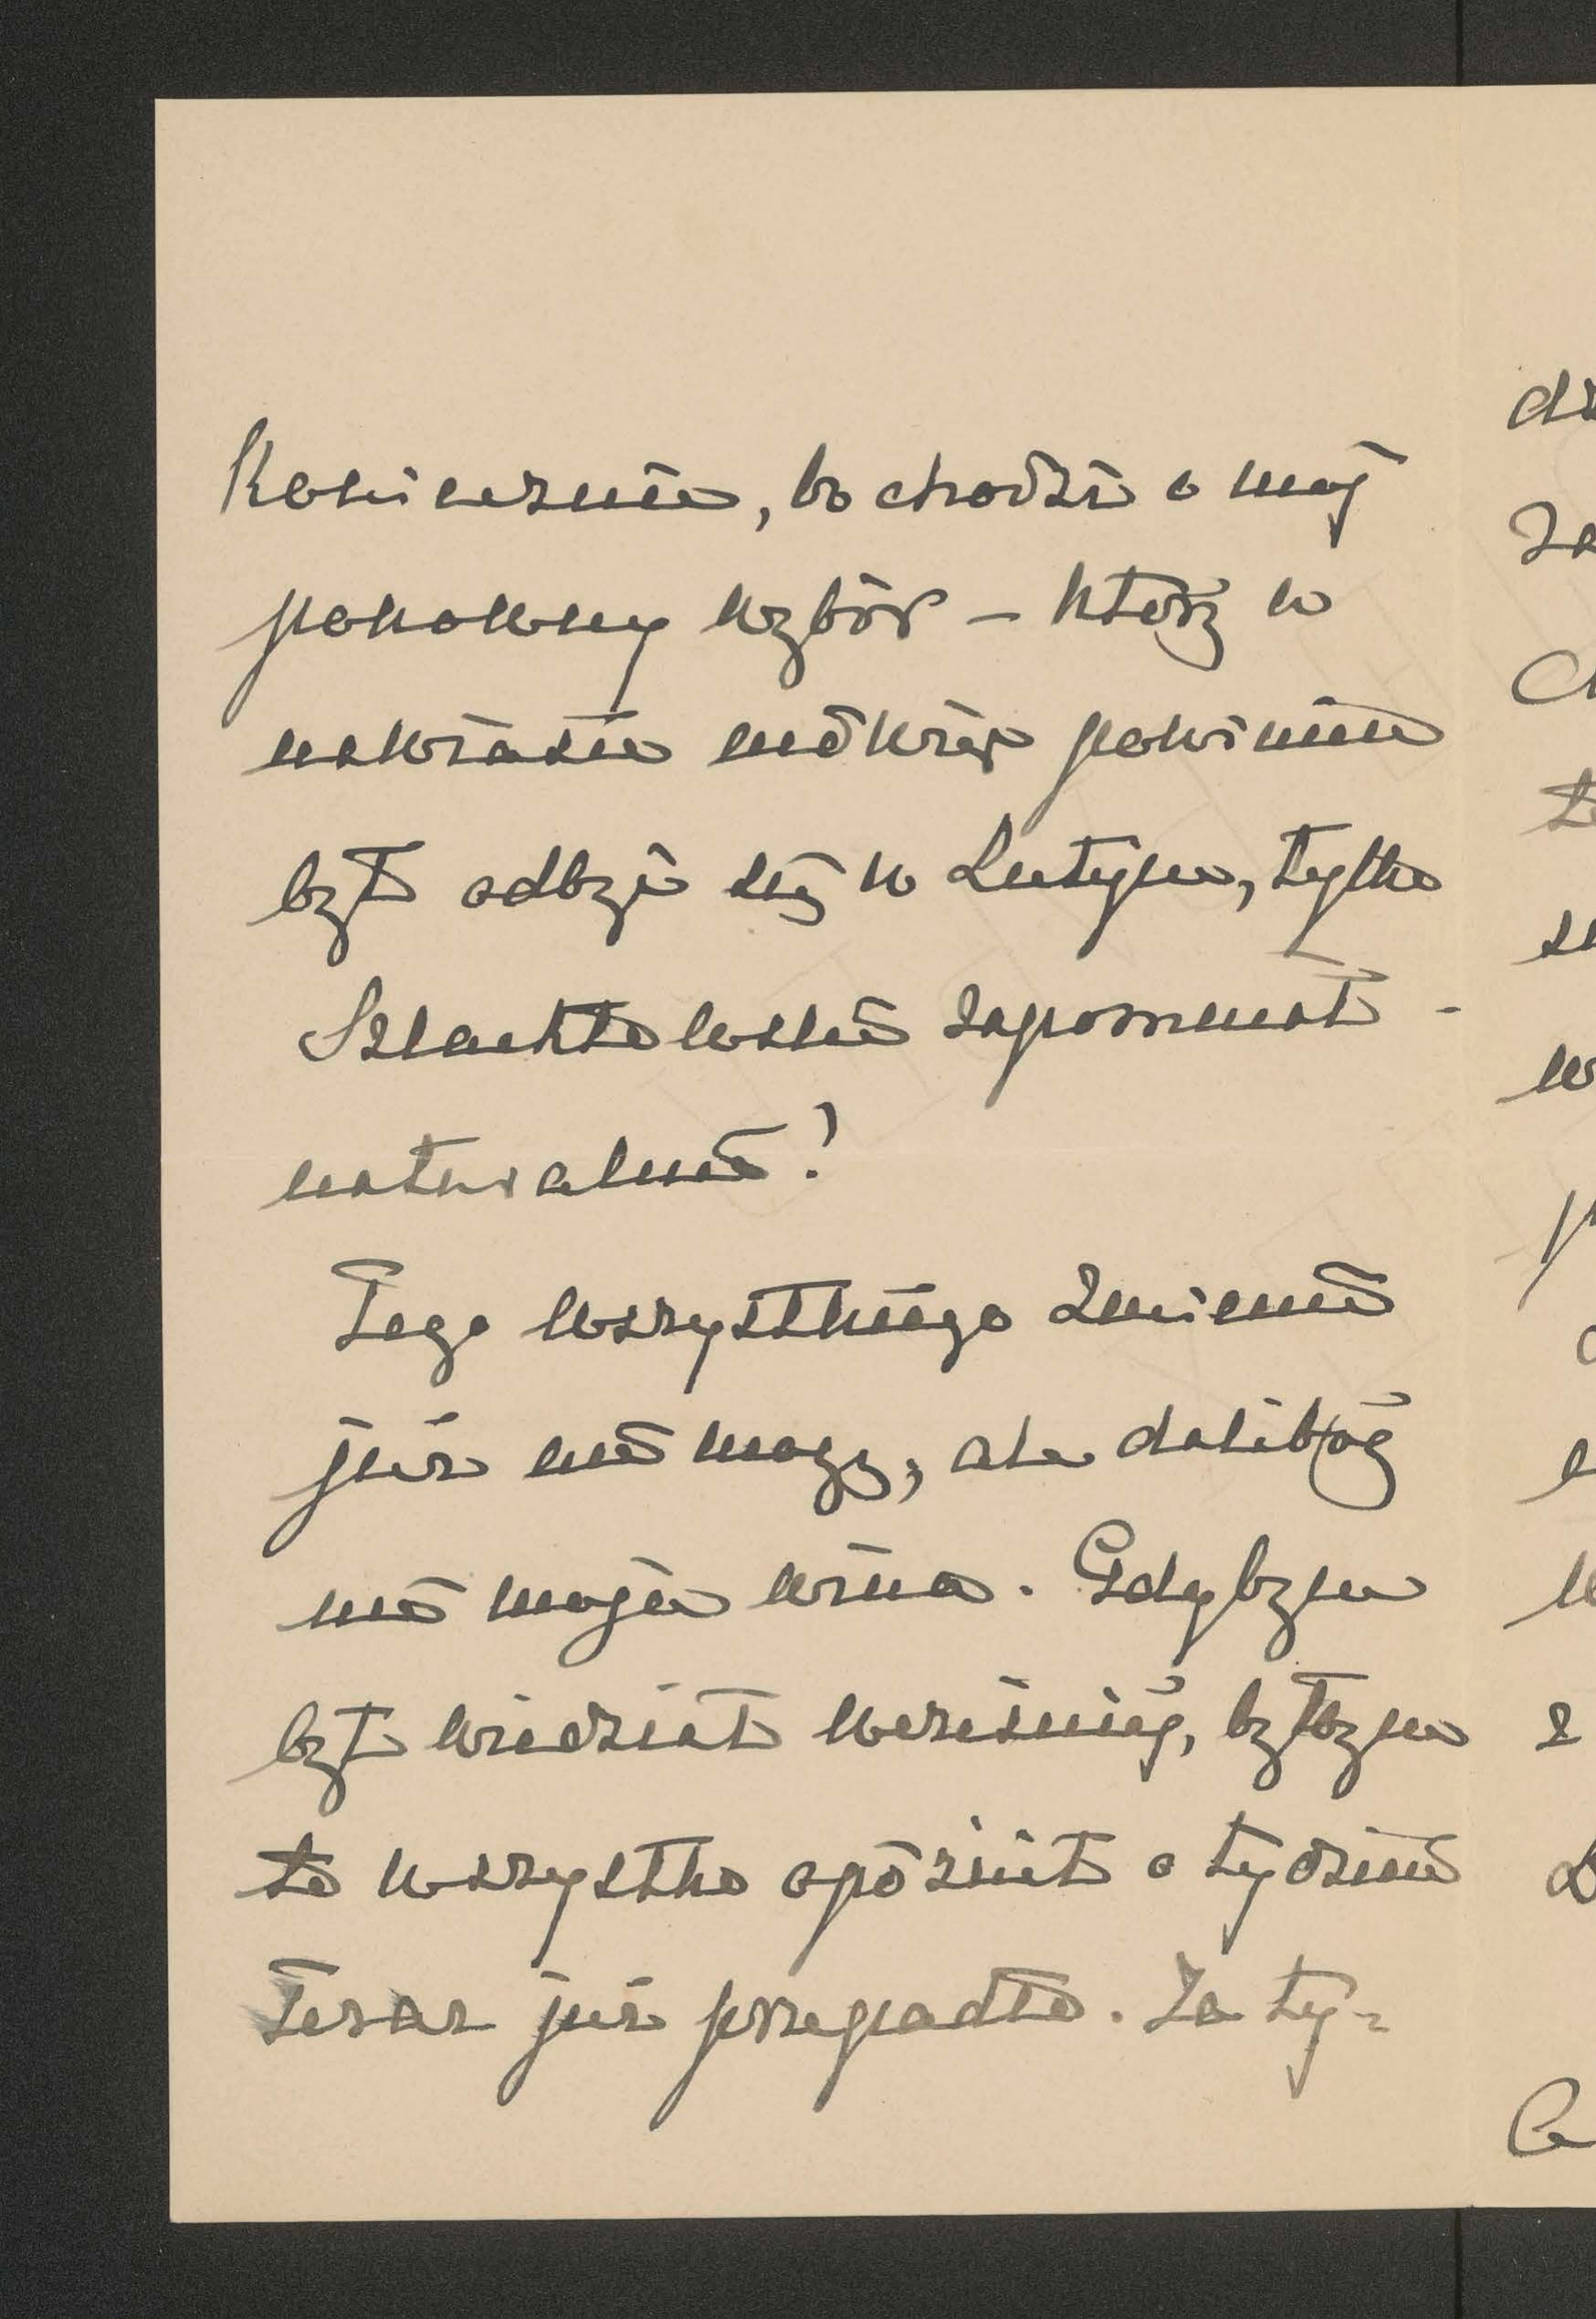 Koniecznie, bo chodzi o mój
ponowny wybór – który w
nawiasie mówiąc powinien
był odbyć się w Lutym, tylko
Szlachtowski zapomniał –
naturalnie!
Tego wszystkiego zmienić
już nie mogę, ale dalibóg
nie moja wina. Gdybym
był wiedział wcześniej, byłbym
to wszystko opóźnił o tydzień
Teraz już przepadło. Za ty-